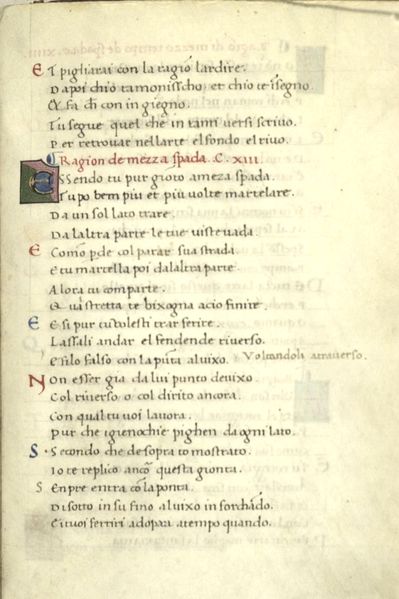 E T pigliarai con la ragiō lardire.
Dapoi chio tamonisscho et chio te isegno.
Et fa di con ingiegno.
Tu segue quel che in tanti versi scrivo.
Per retrovar nellarte el fondo el rivo.
¶ Ragion de mezza spada. C. XIII.
ESSendo tu pur gioto a meza spada.
Tu po bem piu et piu volte martelare.
Da un sol lato trare
Da laltra parte le tue viste vada.
E Como pde col parar sua strada.
E tu martella poi dalaltra parte
Alora tu comparte.
Qual stretta te bixogna acio finire.
E E si pur tu volesti trar ferire.
Lassali andar el fendende riverso.
E e filo falso con la pūta al vixo. Voltandoli atraverso.
N on esser gia da lui punto devixo
Col riverso o col dirito ancora.
Con qual tu voi lavora.
Pur che i gienochie pighen da ogni lato.
S · Secondo che de sopra to mostrato.
Io te replico ancō questa gionta.
S Enpre entra cō la ponta.
Di sotto in su fino al vixo in forchādo.
E i tuoi ferriri adopra a tempo quando.